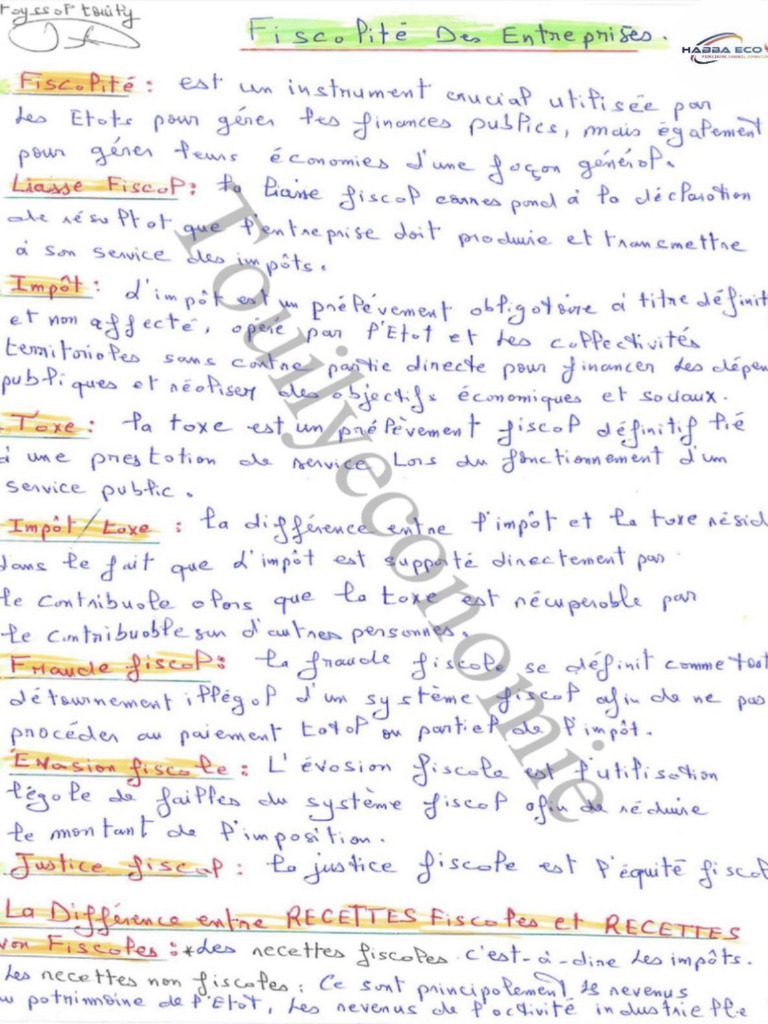 Fiscalité Des Entreprises.
HABBA ECO
Fiscalité : est un instrument crucial utilisée par
Les Etats pour gérer les finances publics, mais également
pour gérer leurs économies d'une façon général.
Liasse Fiscal : la liasse fiscal correspond à la déclaration
de résultat que l'entreprise doit produire et transmettre
à son service des impôts.
Impôt : d'impôt est un prélèvement obligatoire à titre définit
et non affecté, opéré par l'Etat et Les collectivités
territoriales sans contre partie directe pour financer Les dépen
publiques et réaliser des objectifs économiques et sociaux.
Taxe : la taxe est un prélèvement fiscal définitif lié
à une prestation de service Lors du fonctionnement d'un
service public.
Impôt/taxe : la différence entre l'impôt et la taxe résid
dans le fait que d'impôt est supporté directement par
le contribuale alors que la taxe est récuperable par
le contribuable sur d'autres personnes.
Fraude fiscal : la fraude fiscale se définit comme tout
détournement illégal d'un système fiscal afin de ne pas
procéder au paiement total ou partiel de l'impôt.
Evasion fiscale : L'évasion fiscale est l'utilisation
légale de failles du système fiscal afin de réduire
le montant de l'imposition.
Justice fiscal : la justice fiscale est l'équité fiscal
La Différence entre RECETTES Fiscales et RECETTES
non Fiscales : *Les recettes fiscales c'est-à-dire Les impôts.
Les recettes non fiscales : Ce sont principalement les revenus
du patrimoine de l'Etat, Les revenus de l'activité industrielle
Touilyeconomie